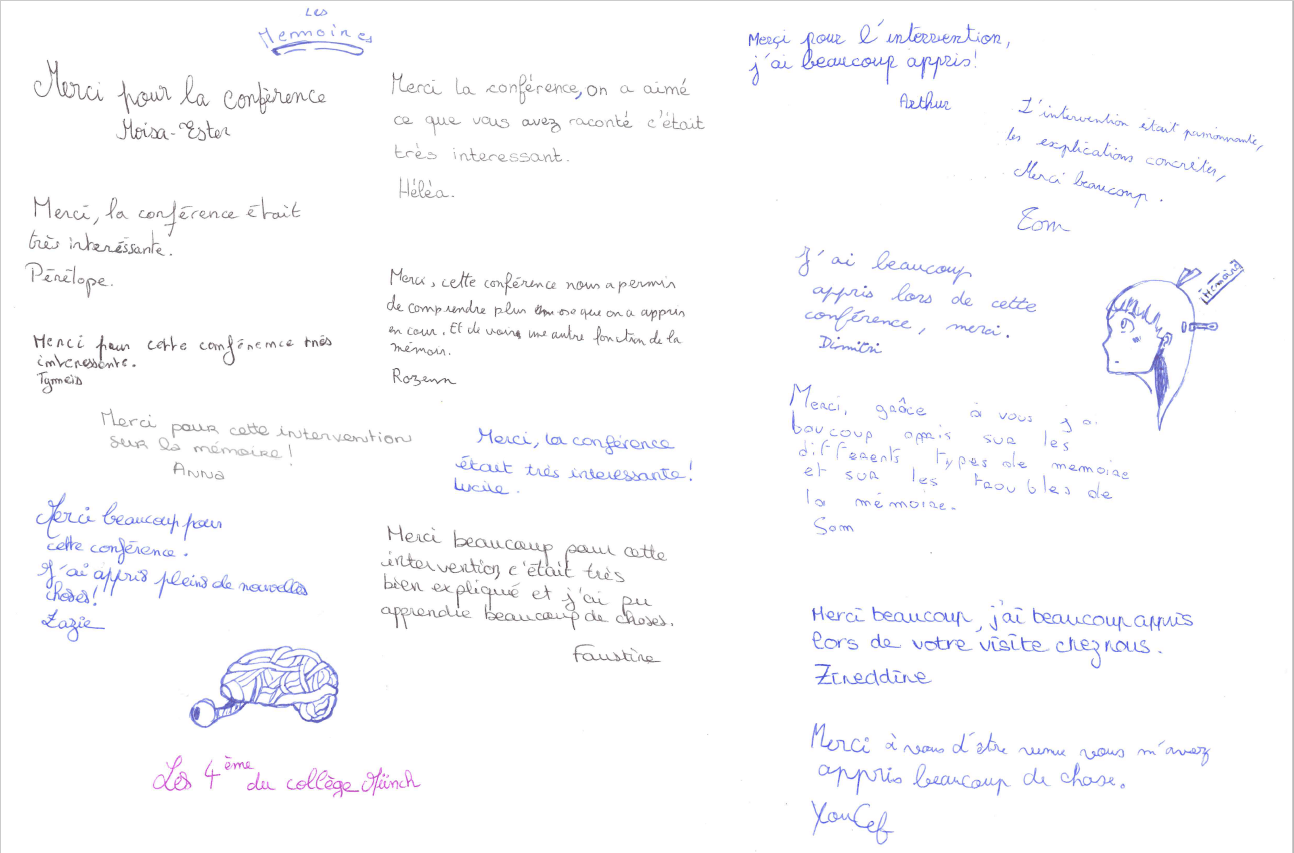 Les
Memoires
Merci pour la conférence
Moisa-Ester
Merci la conférence, on a aimé
ce que vous avez raconté c'était
très interessant.
Héléa.
Merci, la conférence était
très interéssante.
Pénélope.
Merci, cette conférence nous a permis
de comprendre plus que on a appris
en cour. Et de voir une autre fonction de la
mémoir.
Rozenn
Merci pour cette conférence très
interessente.
Merci pour cette intervention
sur la mémoire!
Anna
Merci, la conférence
était très interessante!
Lucile.
Merci beaucoup pour
cette conférence.
J'ai appris pleins de nouvelles
choses!
Zazie
Merci beaucoup pour cette
intervention, c'était très
bien expliqué et j'ai pu
apprendre beaucoup de choses.
Faustine
Les 4ème du collège Münch
Merçi pour l'intervention,
j'ai beaucoup appris!
Arthur
L'intervention était passionnante,
les explications concrètes,
Merci beaucoup.
Tom
J'ai beaucoup
appris lors de cette
conférence, merci.
Dimitri
Mémoire
Merci, grâce à vous j'ai
boucoup appris sur les
différents types de memoire
et sur les troubles de
la mémoire.
Sam
Merci beaucoup, j'ai beaucoup appris
lors de votre visite chez nous.
Zineddine
Merci à vous d'être venu vous m'avez
appris beaucoup de chose.
YouCef